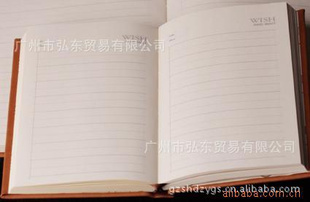 广州市弘东贸易有限公司
WISH
WISH
广州市弘东贸易有限公司
gzshdzygs.cn.alibaba.com